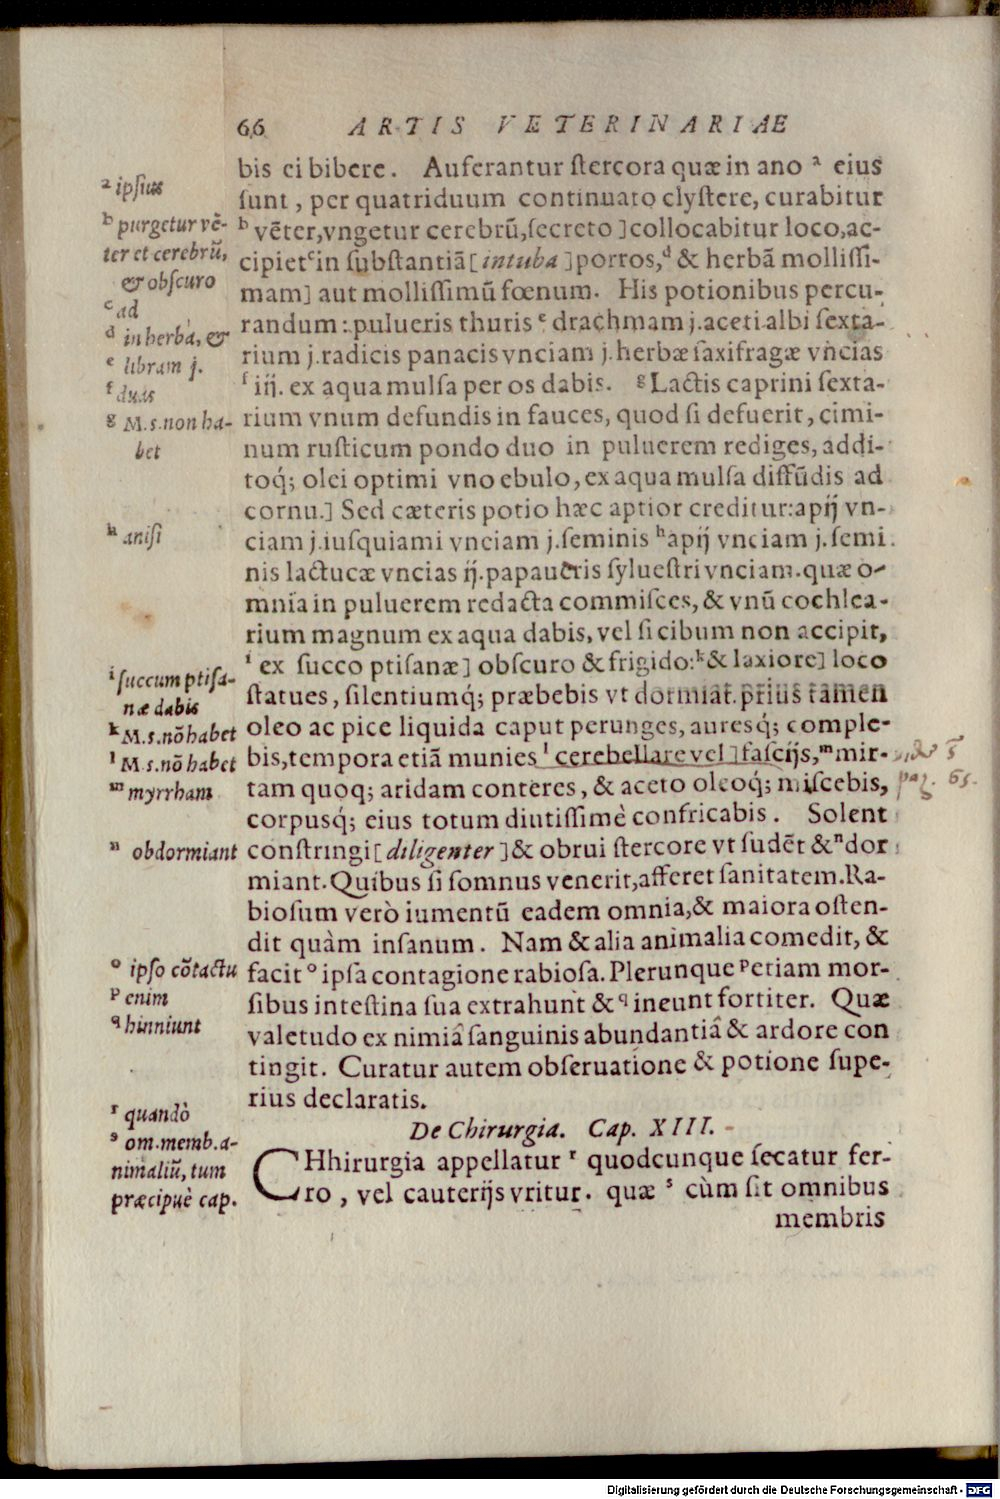 66 ARTIS VETERINARIAE
bis ei bibere. Auferantur ſtercora quæ in ano ᵃ eius
ſunt, per quatriduum continuato clyſtere, curabitur
ᵇ vẽter, vngetur cerebrũ, ſecreto ] collocabitur loco, ac-
cipietᶜ in ſubſtantiã [ intuba ] porros,ᵈ & herbã molliſſi-
mam] aut molliſſimũ fœnum. His potionibus percu-
randum: pulueris thuris ᵉ drachmam j. aceti albi ſexta-
rium j. radicis panacis vnciam j. herbæ ſaxifragæ vncias
ᶠ iij. ex aqua mulſa per os dabis. ᵍ Lactis caprini ſexta-
rium vnum defundis in fauces, quod ſi defuerit, cimi-
num ruſticum pondo duo in puluerem rediges, addi-
toq́; olei optimi vno ebulo, ex aqua mulſa diffũdis ad
cornu.] Sed cæteris potio hæc aptior creditur: apij vn-
ciam j. iuſquiami vnciam j. ſeminis ʰ apij vnciam j. ſemi
nis lactucæ vncias ij. papaueris ſylueſtri vnciam. quæ o-
mnia in puluerem redacta commiſces, & vnũ cochlea-
rium magnum ex aqua dabis, vel ſi cibum non accipit,
ⁱ ex ſucco ptiſanæ] obſcuro & frigido: ᵏ & laxiore] loco
ſtatues, ſilentiumq́; præbebis vt dormiat. prius tamen
oleo ac pice liquida caput perunges, aureſq́; comple-
bis, tempora etiã munies ˡ cerebellare vel ] faſcijs, ᵐ mir-
tam quoq; aridam conteres, & aceto oleoq́; miſcebis,
corpuſq́; eius totum diutiſſimè confricabis. Solent
conſtringi [ diligenter ] & obrui ſtercore vt ſudẽt & ⁿ dor
miant. Quibus ſi ſomnus venerit, afferet ſanitatem. Ra-
bioſum verò iumentũ eadem omnia, & maiora oſten-
dit quàm inſanum. Nam & alia animalia comedit, &
facit ᵒ ipſa contagione rabioſa. Plerunque ᵖ etiam mor-
ſibus inteſtina ſua extrahunt & ᑫ ineunt fortiter. Quæ
valetudo ex nimiâ ſanguinis abundantiâ & ardore con
tingit. Curatur autem obſeruatione & potione ſupe-
rius declaratis.
De Chirurgia. Cap. XIII.
CHhirurgia appellatur ʳ quodcunque ſecatur fer-
ro, vel cauterijs vritur. quæ ˢ cùm ſit omnibus
membris
ᵃ ipſius
ᵇ purgetur vẽ-
ter et cerebrũ,
& obſcuro
ᶜ ad
ᵈ in herba, &
ᵉ libram j.
ᶠ duas
ᵍ M.s. non ha-
bet
ʰ aniſi
ⁱ ſuccum ptiſa-
næ dabis
ᵏ M.s. nõ habet
ˡ M.s. nõ habet
ᵐ myrrham
ⁿ obdormiant
ᵒ ipſo cõtactu
ᵖ enim
ᑫ hinniunt
ʳ quandò
ˢ om. memb. a-
nimaliũ, tum
præcipuè cap.
pag. 65.
Digitalisierung gefördert durch die Deutsche Forschungsgemeinschaft - DFG